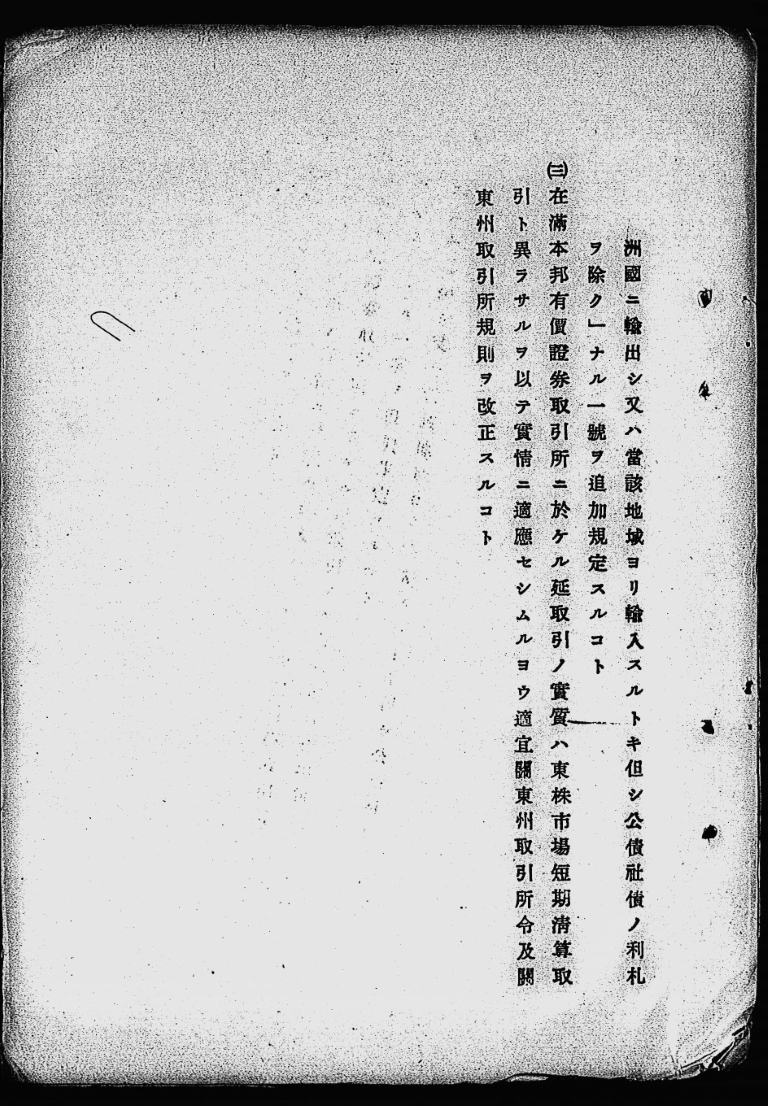 洲國ニ輸出シ又ハ當該地域ヨリ輸入スルトキ但シ公債社債ノ利札
ヲ除ク」ナル一號ヲ追加規定スルコト
㈢在滿本邦有價證券取引所ニ於ケル延取引ノ實質ハ東株市場短期淸算取
引ト異ラサルヲ以テ實情ニ適應セシムルヨウ適宜關東州取引所令及關
東州取引所規則ヲ改正スルコト